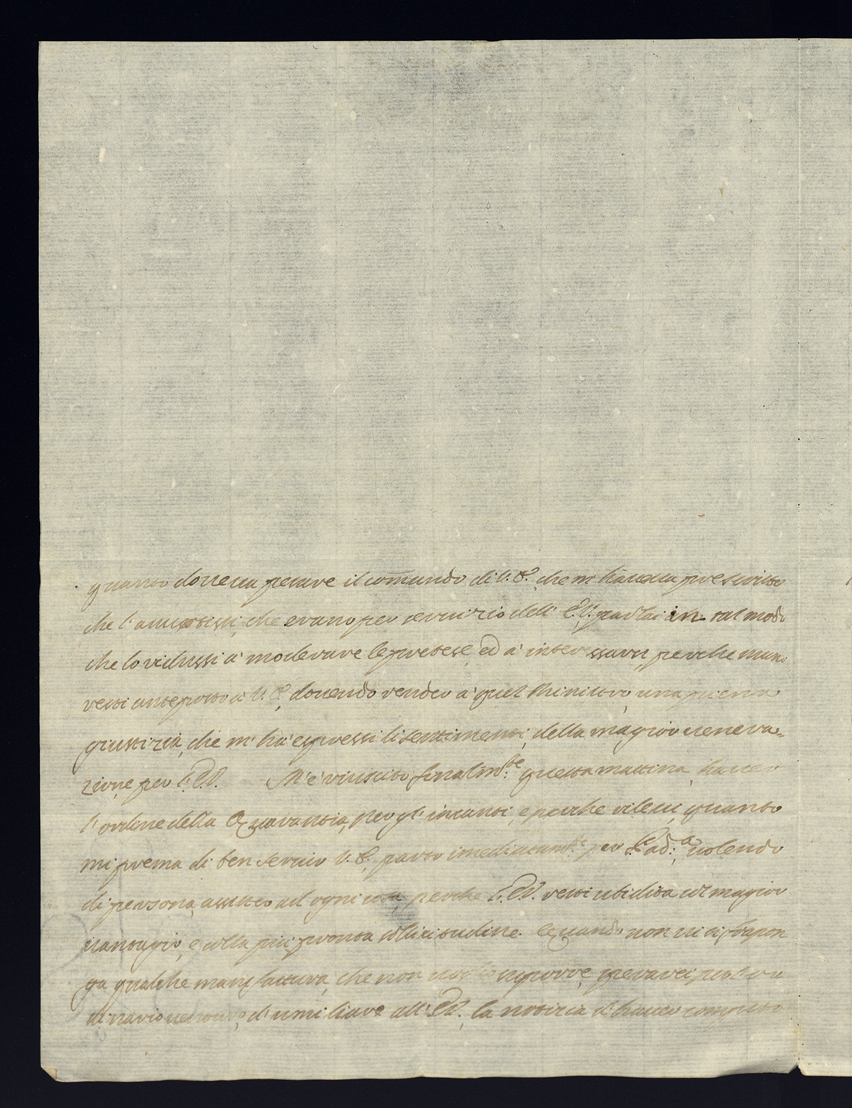 quanto doveva pesare il comãndo di V. E. che m'haveua prescritto
che l'auuertissi, che erano per seruizio dell' E. V. parlai in tal modo
che lo ridussi a' moderare le pretese, ed a' interessarsi, perche
resti anteposto a' V. E. douendo render a' quel Ministro una piena
giustizia, che m'ha' espressi li sentimenti della magior venera-
zione per V. E. M'è riuscito finalm.te questa mattina hauer
l'ordine della Quarantia per gl'incanti, e perche rileui quanto
mi prema di ben seruir V. E. parto imediatam.te per Pad.a uolendo
di persona assister ad ogni cosa perche V. E. resti ubidita col magior
uantagio, e colla più pronta solicitudine. E quando non ui si frapon
ga qualche manifattura, che non
di umiliare all' E. V. la notizia d'hauer